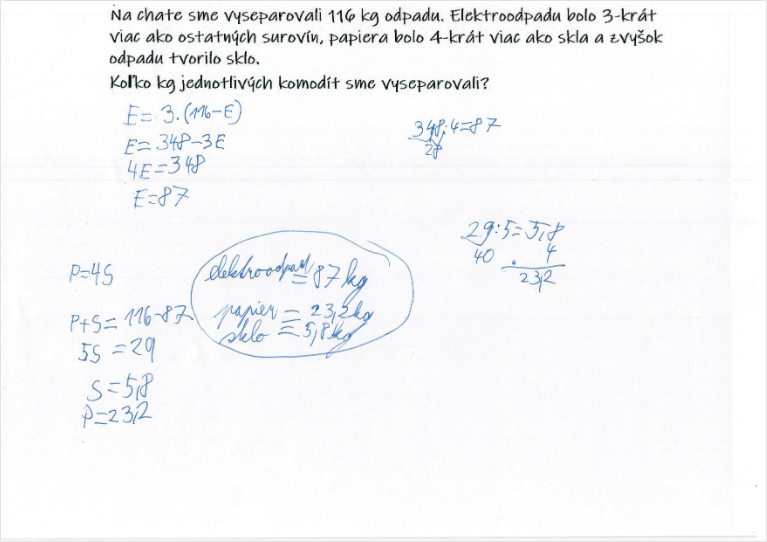 Na chate sme vyseparovali 116 kg odpadu. Elektroodpadu bolo 3-krát
viac ako ostatných surovín, papiera bolo 4-krát viac ako skla a zvyšok
odpadu tvorilo sklo.
Koľko kg jednotlivých komodít sme vyseparovali?
E = 3.(116-E)
E = 348-3E
4E = 348
E = 87
348:4=87
28
29:5=5,8
40 . 4
23,2
P=4S
P+S= 116-87
5S = 29
S = 5,8
P=23,2
elektroodpad = 87 kg
papier = 23,2 kg
sklo = 5,8 kg